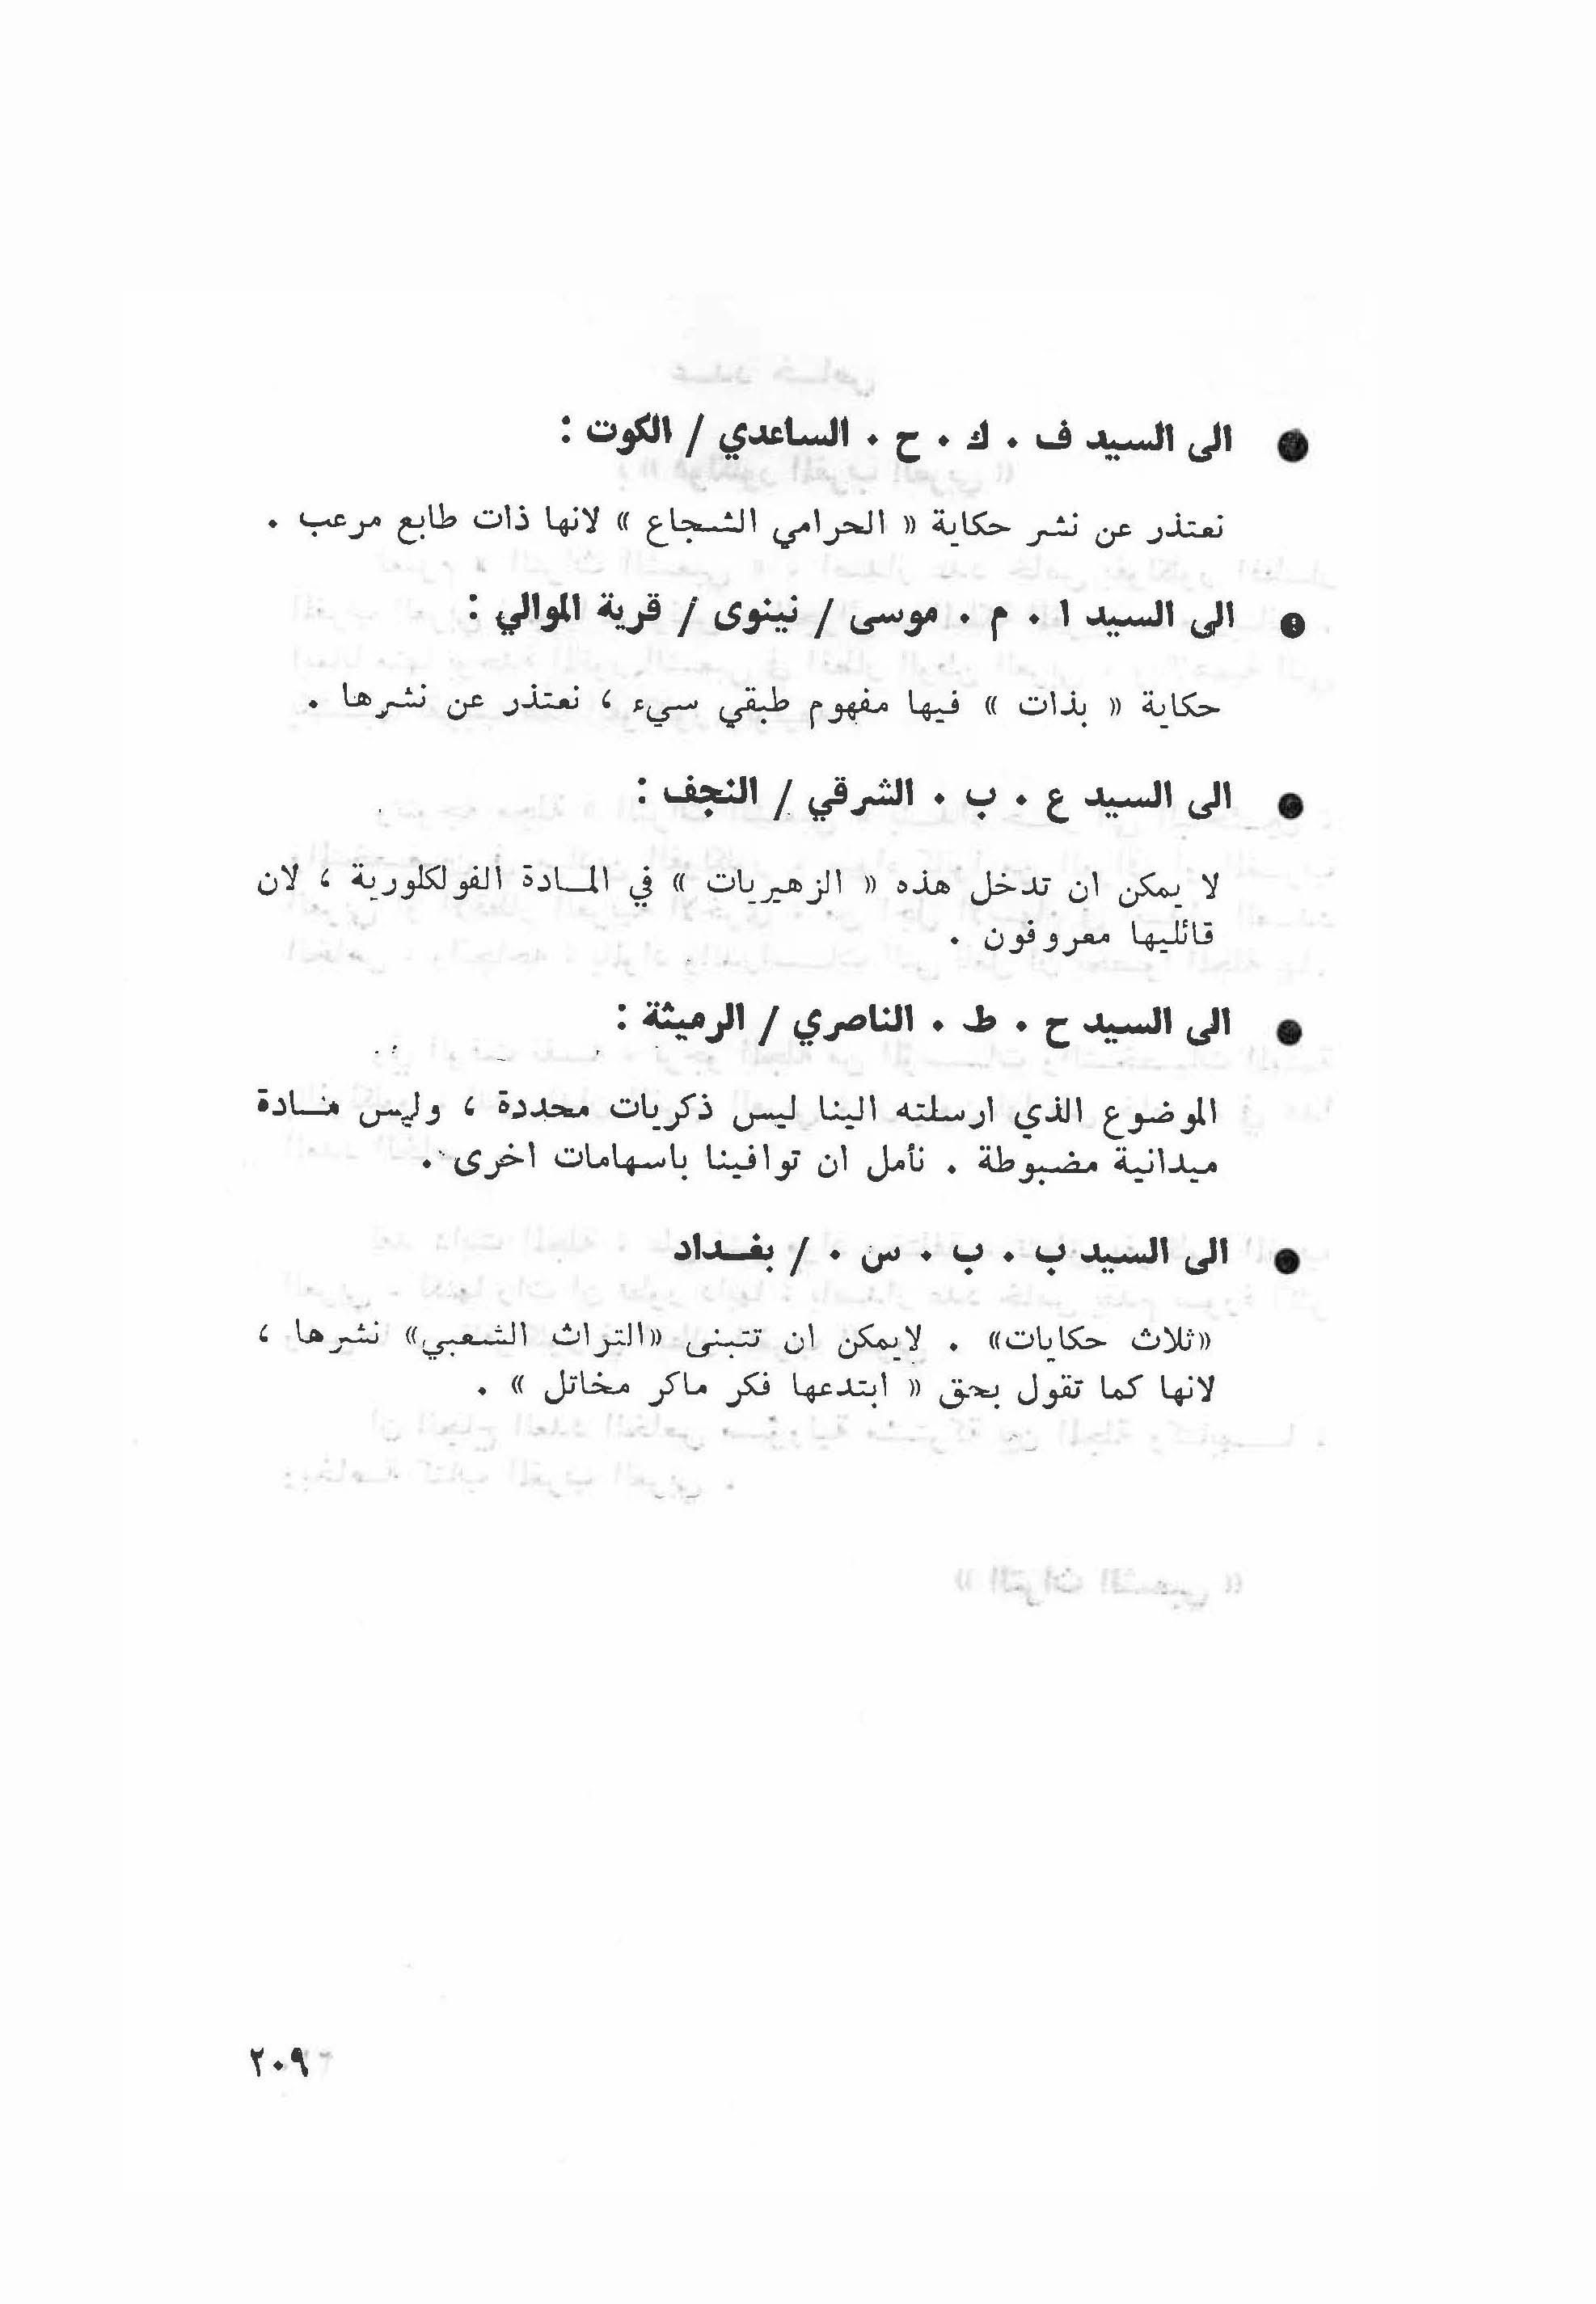 ● الى السيد ف . ك . ح . الساعدي / الكوت :
نعتذر عن نشر حكاية « الحرامي الشجاع » لانها ذات طابع مرعب .
● الى السيد ا . م . موسى / نينوى / قرية الموالي :
حكاية « بذات » فيها مفهوم طبقي سيء ، نعتذر عن نشرها .
● الى السيد ع . ب . الشرقي / النجف :
لا يمكن ان تدخل هذه « الزهيريات » في المــادة الفولكلورية ، لان
قائليها معروفون .
● الى السيد ح . ط . الناصري / الرميثة :
الموضوع الذي ارسلته الينا ليس ذكريات محددة ، وليس مــادة
ميدانية مضبوطة . نأمل ان توافينا باسهامات اخرى .
● الى السيد ب . ب . س . / بغــداد
«ثلاث حكايات» . لايمكن ان تتبنى «التراث الشعبي» نشرها ،
لانها كما تقول بحق « ابتدعها فكر ماكر مخاتل » .
٢٠٩